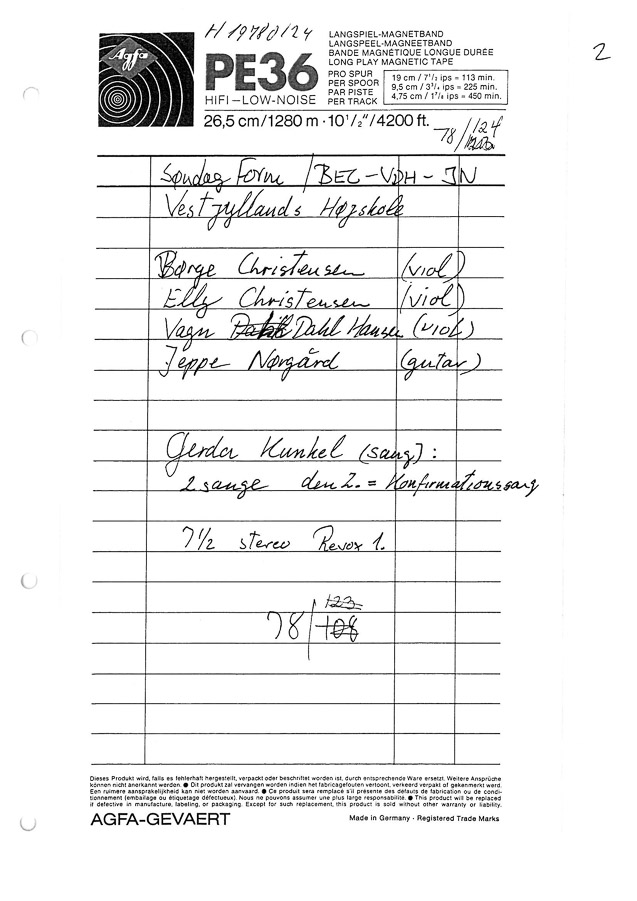 H 1978 0/24
2
Agfa
PE36
HIFI–LOW–NOISE
LANGSPIEL-MAGNETBAND
LANGSPEEL-MAGNEETBAND
BANDE MAGNÉTIQUE LONGUE DURÉE
LONG PLAY MAGNETIC TAPE
PRO SPUR
PER SPOOR
PAR PISTE
PER TRACK
19 cm / 7½ ips = 113 min.
9,5 cm / 3¾ ips = 225 min.
4,75 cm / 1⅞ ips = 450 min.
26,5 cm/1280 m · 10½"/4200 ft.
78/124
Søndag Form / BEC–VDH–JN
Vestjyllands Højskole
Børge Christensen (viol)
Elly Christensen (viol)
Vagn Dahl Hansen (viol)
Jeppe Nørgård (gutar)
Gerda Kunkel (sang):
2 sange den 2. = Konfirmationssang
7½ stereo Revox 1.
123
78/108
Dieses Produkt wird, falls es fehlerhaft hergestellt, verpackt oder beschriftet worden ist, durch entsprechende Ware ersetzt. Weitere Ansprüche
können nicht anerkannt werden. ● Dit produkt zal vervangen worden indien het fabricagefouten vertoont, verkeerd verpakt of gekenmerkt werd.
Een ruimere aansprakelijkheid kan niet worden aanvaard. ● Ce produit sera remplacé s'il présente des défauts de fabrication ou de condi-
tionnement (emballage ou étiquetage défectueux). Nous ne pouvons assumer une plus large responsabilité. ● This product will be replaced
if defective in manufacture, labeling, or packaging. Except for such replacement, this product is sold without other warranty or liability.
AGFA-GEVAERT
Made in Germany · Registered Trade Marks